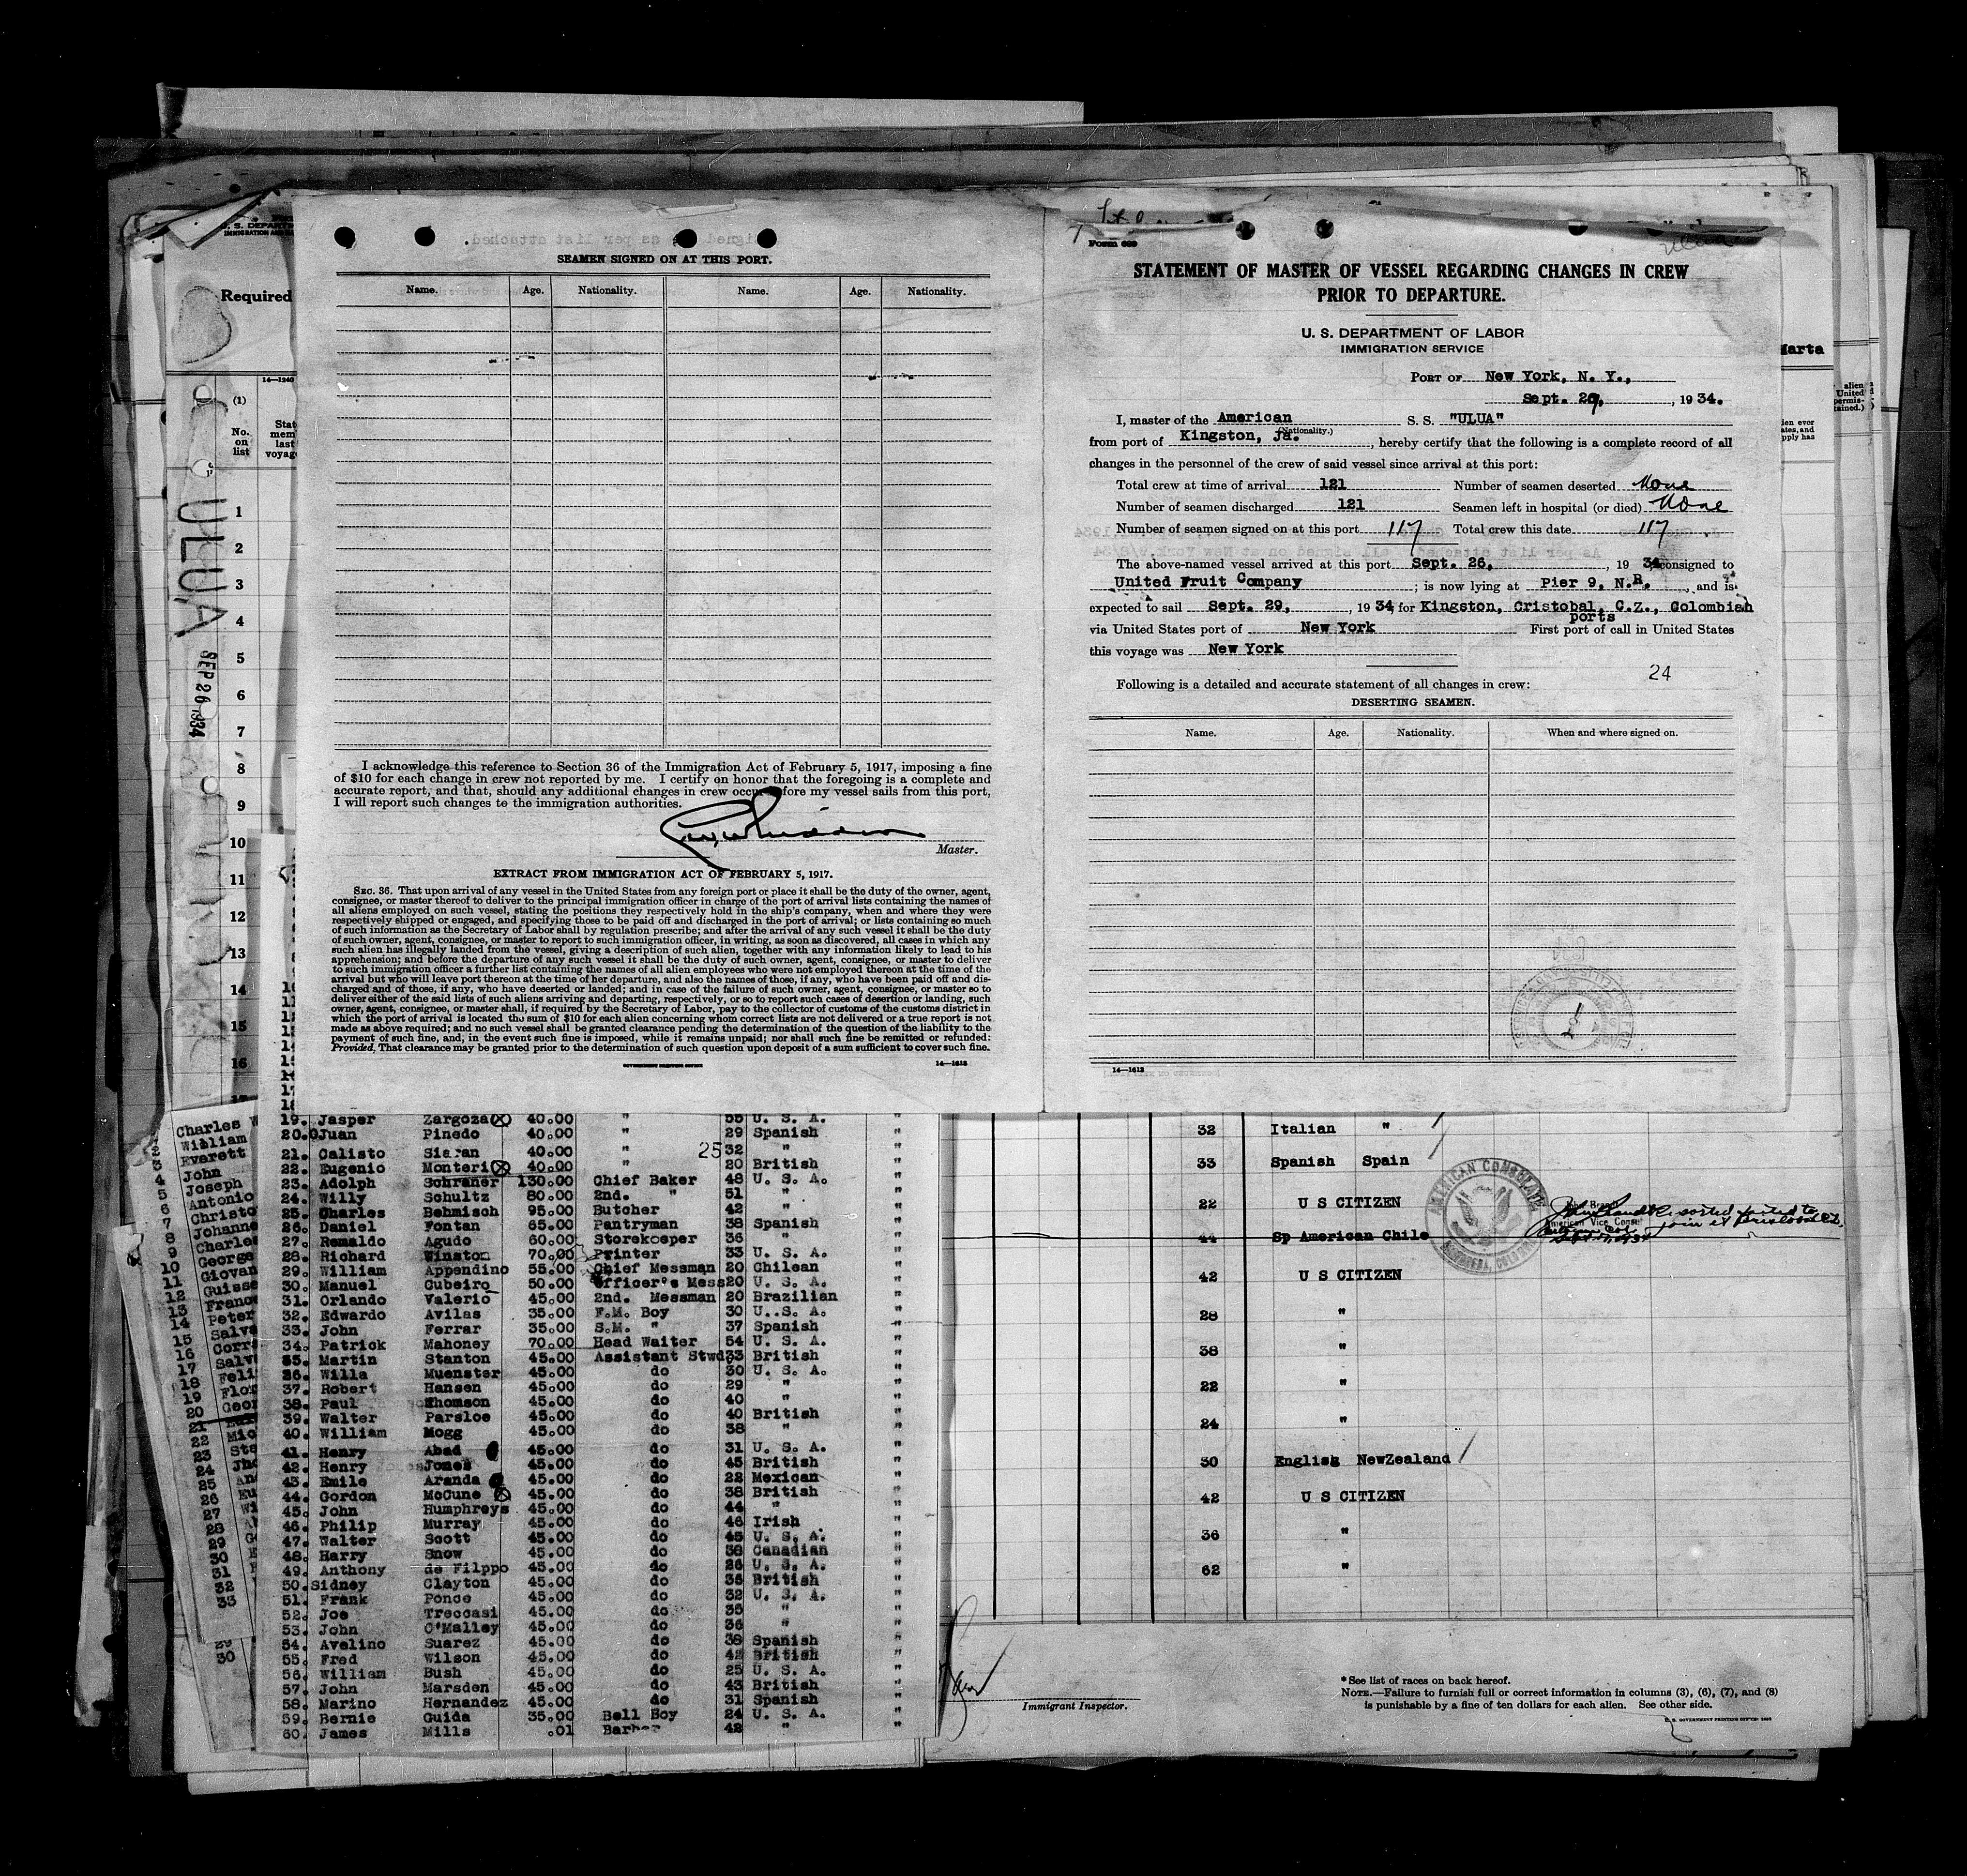 SEAMEN SIGNED ON AT THIS PORT.
Name. Age. Nationality. Name. Age. Nationality.
I acknowledge this reference to Section 36 of the Immigration Act of February 5, 1917, imposing a fine
of $10 for each change in crew not reported by me. I certify on honor that the foregoing is a complete and
accurate report, and that, should any additional changes in crew occur before my vessel sails from this port,
I will report such changes to the immigration authorities.
Master.
EXTRACT FROM IMMIGRATION ACT OF FEBRUARY 5, 1917.
SEC. 36. That upon arrival of any vessel in the United States from any foreign port or place it shall be the duty of the owner, agent,
consignee, or master thereof to deliver to the principal immigration officer in charge of the port of arrival lists containing the names of
all aliens employed on such vessel, stating the positions they respectively hold in the ship's company, when and where they were
respectively shipped or engaged, and specifying those to be paid off and discharged in the port of arrival; or lists containing so much
of such information as the Secretary of Labor shall by regulation prescribe; and after the arrival of any such vessel it shall be the duty
of such owner, agent, consignee, or master to report to such immigration officer, in writing, as soon as discovered, all cases in which any
such alien has illegally landed from the vessel, giving a description of such alien, together with any information likely to lead to his
apprehension; and before the departure of any such vessel it shall be the duty of such owner, agent, consignee, or master to deliver
to such immigration officer a further list containing the names of all alien employees who were not employed thereon at the time of the
arrival but who will leave port thereon at the time of her departure, and also the names of those, if any, who have been paid off and dis-
charged and of those, if any, who have deserted or landed; and in case of the failure of such owner, agent, consignee, or master so to
deliver either of the said lists of such aliens arriving and departing, respectively, or so to report such cases of desertion or landing, such
owner, agent, consignee, or master shall, if required by the Secretary of Labor, pay to the collector of customs of the customs district in
which the port of arrival is located the sum of $10 for each alien concerning whom correct lists are not delivered or a true report is not
made as above required; and no such vessel shall be granted clearance pending the determination of the question of the liability to the
payment of such fine, and, in the event such fine is imposed, while it remains unpaid; nor shall such fine be remitted or refunded:
Provided, That clearance may be granted prior to the determination of such question upon deposit of a sum sufficient to cover such fine.
GOVERNMENT PRINTING OFFICE 14—1613
Form 689
STATEMENT OF MASTER OF VESSEL REGARDING CHANGES IN CREW
PRIOR TO DEPARTURE.
U. S. DEPARTMENT OF LABOR
IMMIGRATION SERVICE
PORT OF New York, N. Y.,
Sept. 29, , 1934.
I, master of the American S. S. "ULUA"
(Nationality.)
from port of Kingston, Ja. , hereby certify that the following is a complete record of all
changes in the personnel of the crew of said vessel since arrival at this port:
Total crew at time of arrival 121 Number of seamen deserted None
Number of seamen discharged 121 Seamen left in hospital (or died) None
Number of seamen signed on at this port 117 Total crew this date 117
The above-named vessel arrived at this port Sept. 26, , 1934, consigned to
United Fruit Company ; is now lying at Pier 9, N.R. , and is
expected to sail Sept. 29, , 1934, for Kingston, Cristobal, C.Z., Colombian
ports
via United States port of New York First port of call in United States
this voyage was New York
24
Following is a detailed and accurate statement of all changes in crew:
DESERTING SEAMEN.
Name. Age. Nationality. When and where signed on.
14—1613
U. S. DEPART
Required
14—1240
(1)
No. on list
ULUA
SEP 26 1934
1
2
3
4
5
6
7
8
9
10
11
12
13
14
15
16
Marta
Charles W
William
Everett
John
Joseph
Antonio
Christo
Johanne
Charles
George
Giovan
Guisse
Franc
Peter
Salva
19. Jasper Zargoza 40.00 " 55 U. S. A. "
20. Juan Pinedo 40.00 " 29 Spanish "
21. Calisto Siaran 40.00 " 25 32 " "
22. Eugenio Monteri 40.00 " 20 British "
23. Adolph Schraner 130.00 Chief Baker 48 U. S. A. "
24. Willy Schultz 80.00 2nd. " 51 " "
25. Charles Behmisch 95.00 Butcher 42 " "
26. Daniel Fontan 65.00 Pantryman 38 Spanish "
27. Remaldo Agudo 60.00 Storekeeper 36 " "
28. Richard Winston 70.00 Printer 33 U. S. A. "
29. William Appendino 55.00 Chief Messman 20 Chilean "
30. Manuel Cubeiro 50.00 Officer's Mess 20 U. S. A. "
31. Orlando Valerio 45.00 2nd. Messman 20 Brazilian "
32. Edwardo Avilas 35.00 F.M. Boy 30 U..S. A. "
33. John Ferrar 35.00 S.M. " 37 Spanish "
34. Patrick Mahoney 70.00 Head Waiter 54 U. S. A. "
35. Martin Stanton 45.00 Assistant Stwd 33 British "
36. Willa Muenster 45.00 do 30 U. S. A. "
37. Robert Hansen 45.00 do 29 " "
38. Paul Thomson 45.00 do 40 " "
39. Walter Parsloe 45.00 do 40 British "
40. William Mogg 45.00 do 38 " "
41. Henry Abad 45.00 do 31 U. S. A. "
42. Henry Jones 45.00 do 45 British "
43. Emile Aranda 45.00 do 22 Mexican "
44. Gordon McCune 45.00 do 38 British "
45. John Humphreys 45.00 do 44 " "
46. Philip Murray 45.00 do 46 Irish "
47. Walter Scott 45.00 do 45 U. S. A. "
48. Harry Snow 45.00 do 38 Canadian "
49. Anthony de Filppo 45.00 do 26 U. S. A. "
50. Sidney Clayton 45.00 do 36 British "
51. Frank Ponce 45.00 do 32 U. S. A. "
52. Joe Treccasi 45.00 do 35 " "
53. John O'Malley 45.00 do 36 " "
54. Avelino Suarez 45.00 do 38 Spanish "
55. Fred Wilson 45.00 do 42 British "
56. William Bush 45.00 do 25 U. S. A. "
57. John Marsden 45.00 do 43 British "
58. Marino Hernandez 45.00 do 31 Spanish "
59. Bernie Guida 35.00 Bell Boy 24 U. S. A. "
60. James Mills .01 Barber 42 " "
32 Italian "
33 Spanish Spain
22 U S CITIZEN
44 Sp American Chile
42 U S CITIZEN
28 "
38 "
22 "
24 "
30 English NewZealand
42 U S CITIZEN
36 "
62 "
AMERICAN CONSULATE
American Vice Consul
Immigrant Inspector.
* See list of races on back hereof.
NOTE.—Failure to furnish full or correct information in columns (3), (6), (7), and (8)
is punishable by a fine of ten dollars for each alien. See other side.
U. S. GOVERNMENT PRINTING OFFICE